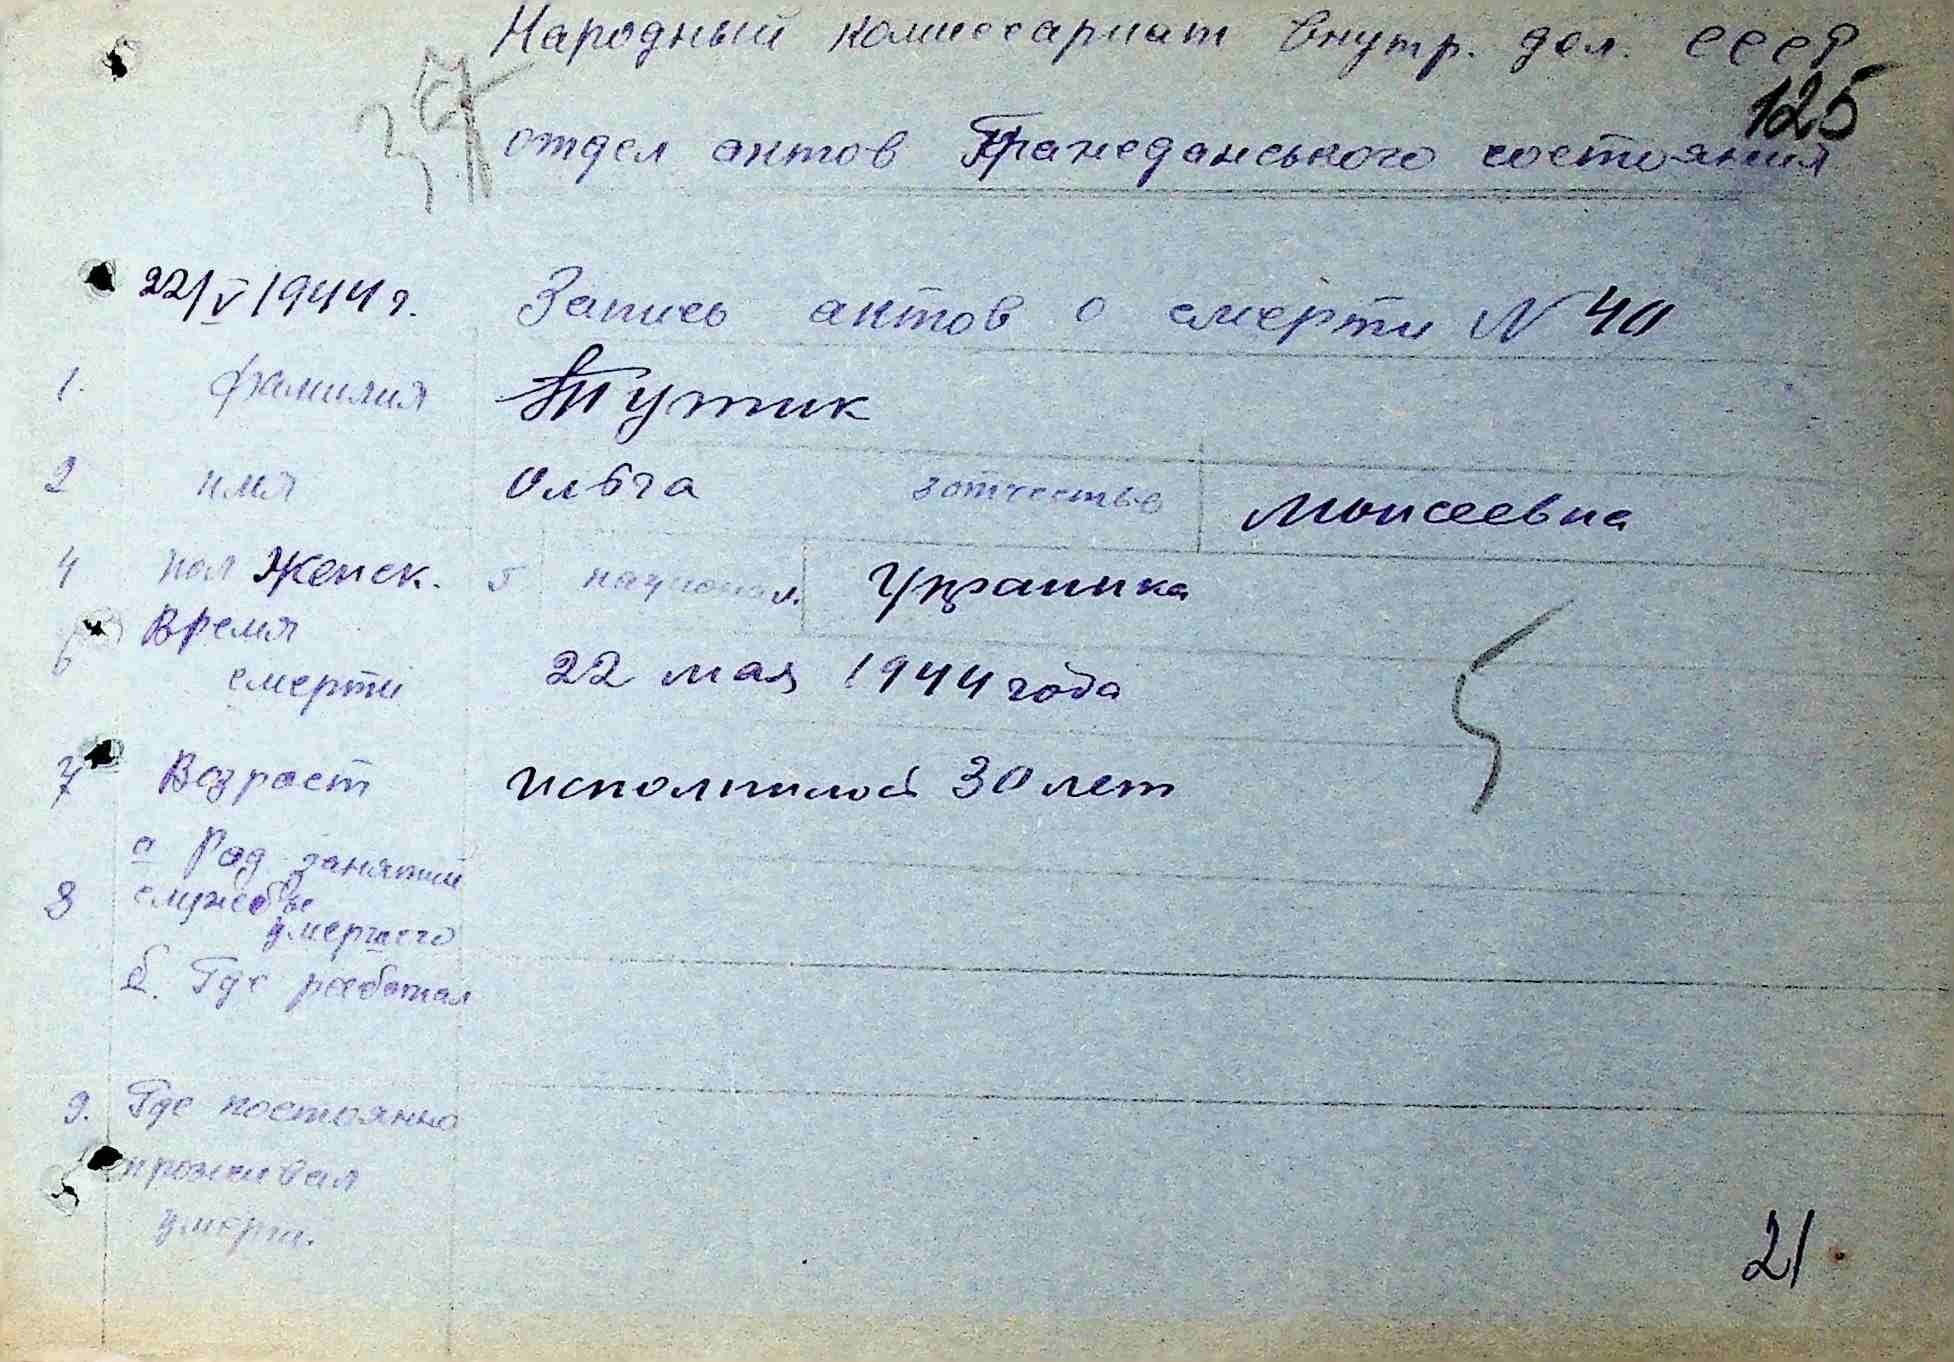 Народный комиссариат Внутр. дел. СССР
125
отдел актов Гражеданського состояния
22/V 1944 г.
Запись актов о смерти N 40
1. фамилия Тутик
2 имя Ольга 3 отчество Моисеевна
4 пол Женск. 5 национал. Украинка
6 Время
смерти 22 мая 1944 года
7 Возраст исполнилось 30 лет
а Род занятий
8 службы
умершего
б. Где работал
9. Где постоянно
проживал
умерш.
21